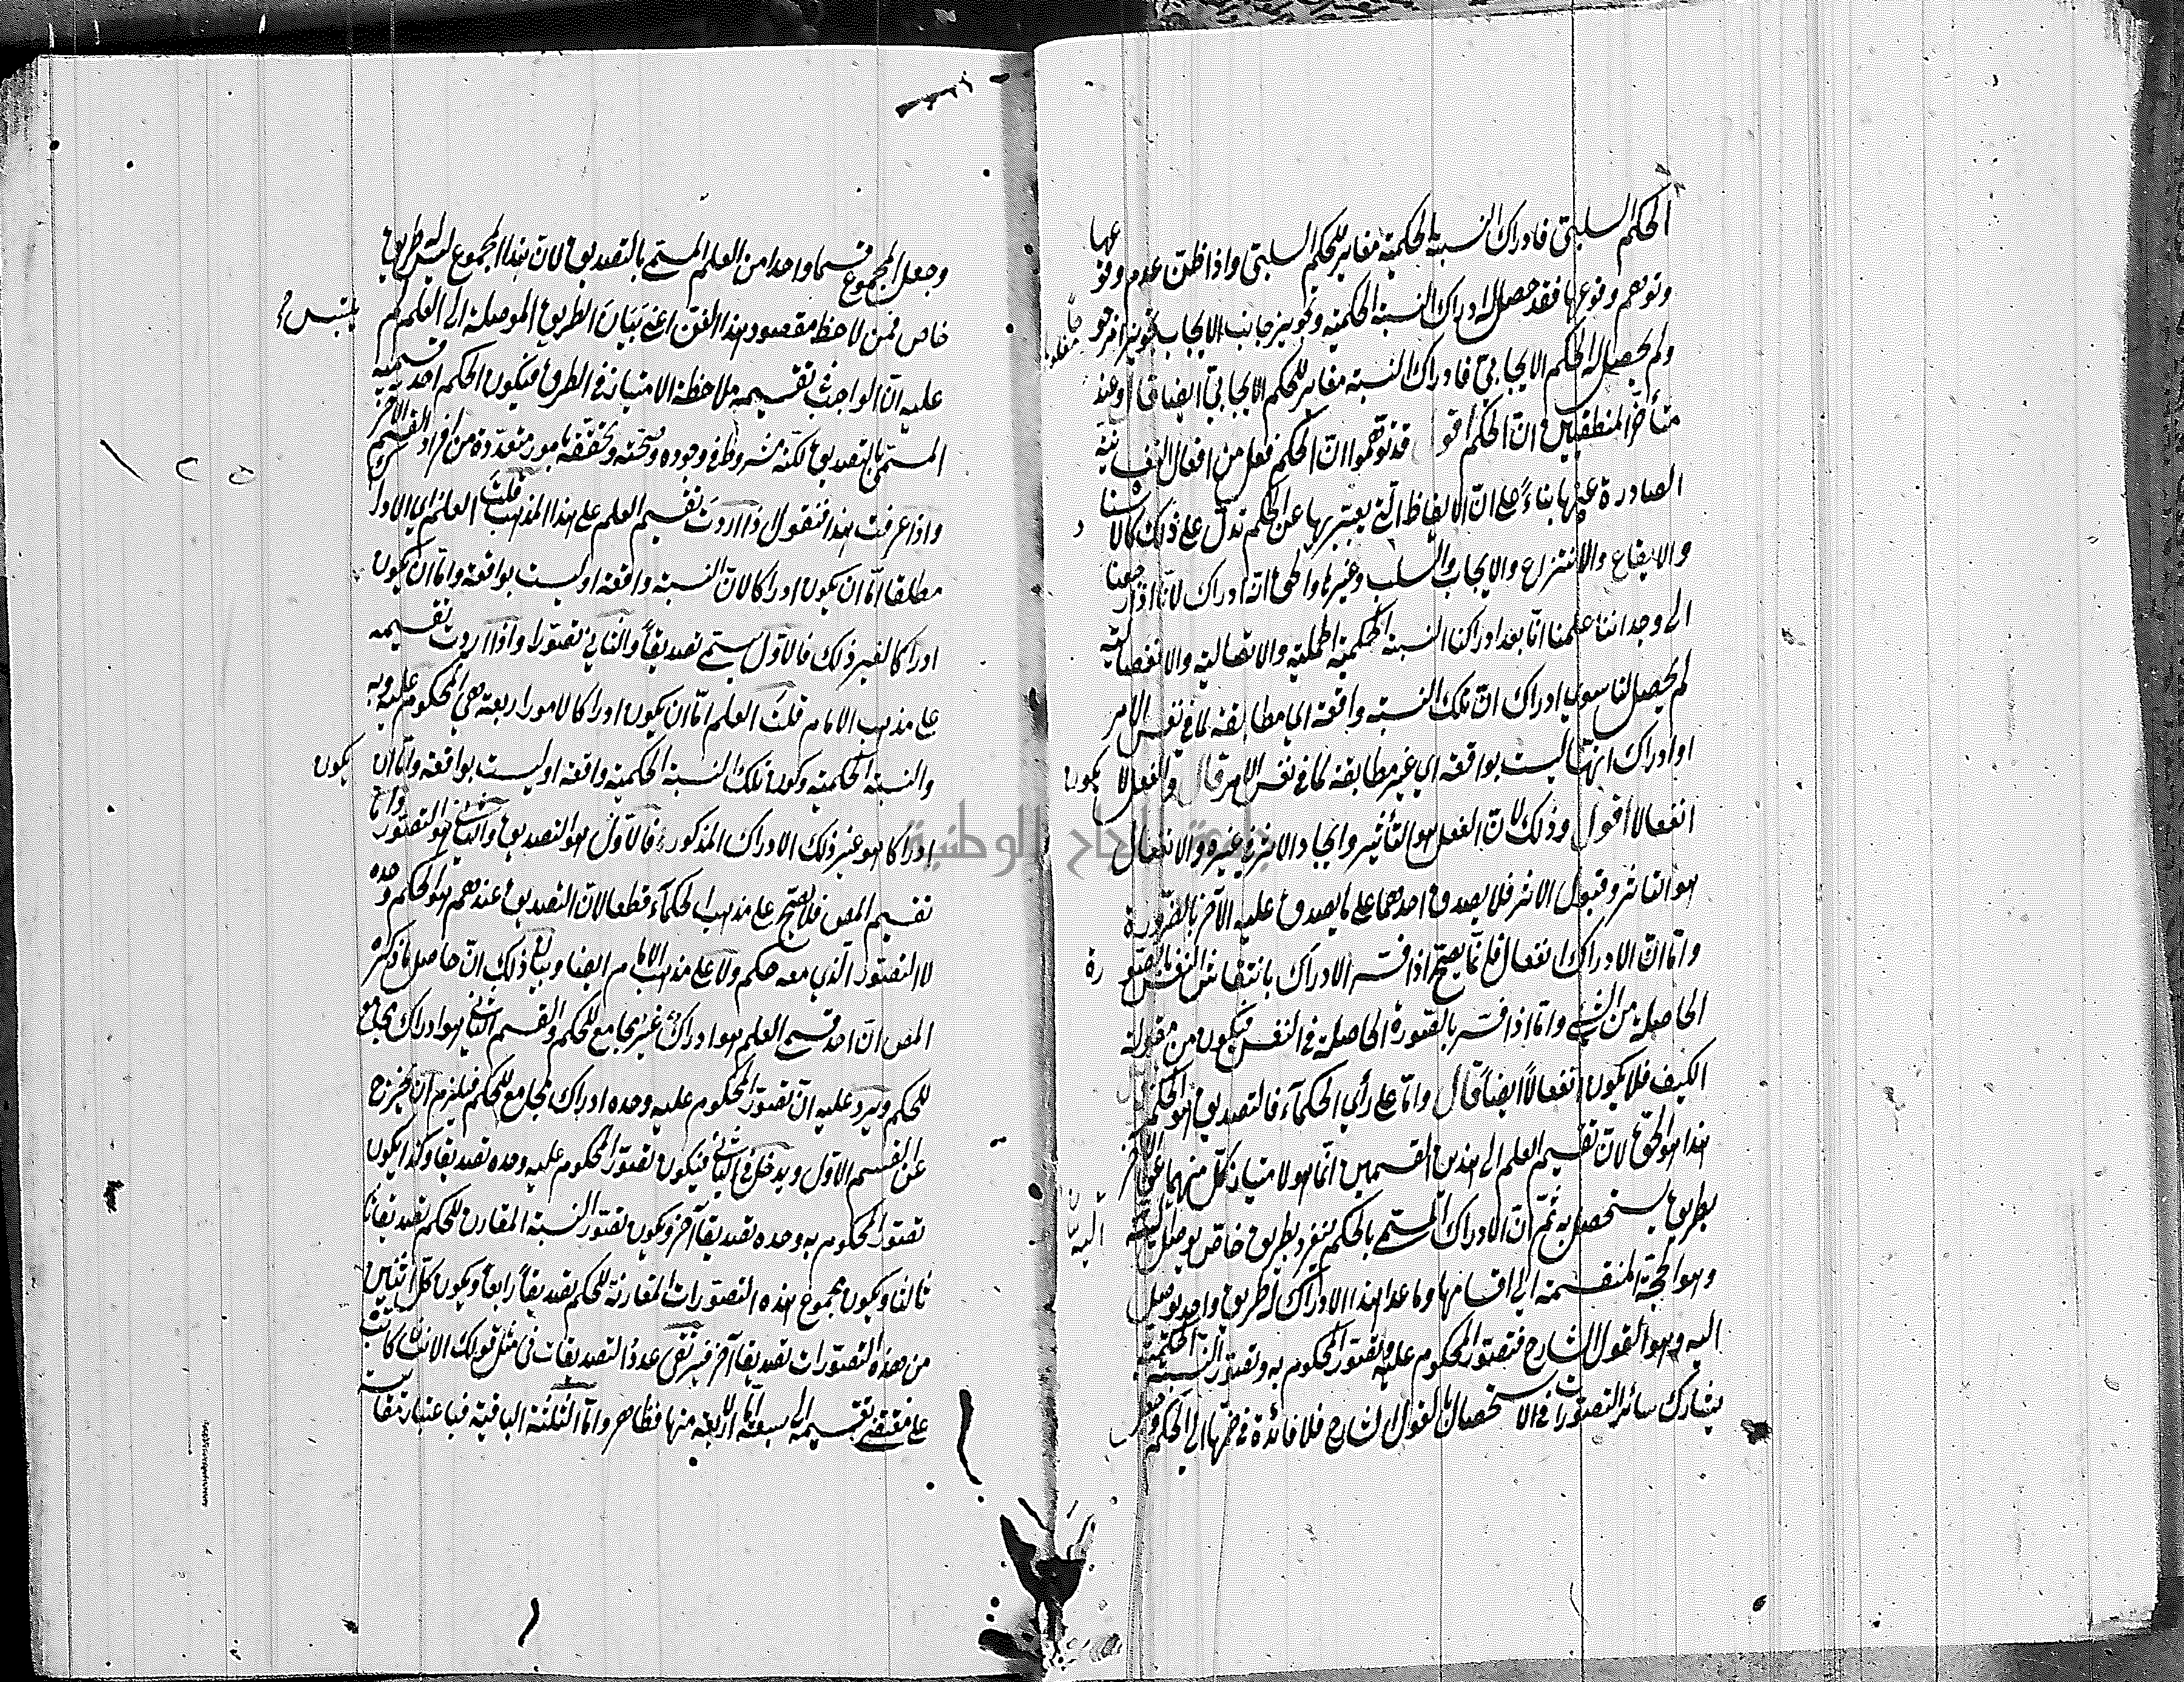 الحكم السلبي فادراك النسبة الحكمية مغاير للحكم السلبي واذا ظن عدم وقوعها
وتوهم وقوعها فقد حصل له ادراك النسبة الحكمية وتجويز جانب الايجاب تجويزا مرجوحا
ولم يحصل له الحكم الايجابي فادراك النسبة مغاير للحكم الايجابي ايضا قال وعند
متأخرى المنطقيين ان الحكم اقول قد توهموا ان الحكم فعل من افعال النفسانية
الصادرة عنها بناء على ان الالفاظ التي يعبر بها عن الحكم تدل على ذلك كالاسناد
والايقاع والانتزاع والايجاب والسلب وغيرها والحق انه ادراك لانا اذا رجعنا
الى وجداننا علمنا انا بعد ادراكنا النسبة الحكمية الحملية والاتصالية والانفصالية
لم يحصل لنا سوى ادراك ان تلك النسبة واقعة اي مطابقة لما في نفس الامر
او ادراك انها ليست بواقعة اي غير مطابقة لما في نفس الامر قال والفعل لا يكون
انفعالا اقول وذلك لان الفعل هو التأثير وايجاد الاثر في غيره والانفعال
هو التاثر وقبول الاثر فلا يصدق احدهما على ما يصدق عليه الآخر بالضرورة
واما ان الادراك انفعال فانما يصح اذا فسر الادراك بانتقاش النفس بالصورة
الحاصلة من الشئ واما اذا فسر بالصورة الحاصلة في النفس فيكون من مقولة
الكيف فلا يكون انفعالا ايضا قال واما على رأي الحكماء فالتصديق هو الحكم
هذا هو الحق لان تقسيم العلم الى هذين القسمين انما هو لامتياز كل منهما عن الآخر
بطريق يستحصل به ثم ان الادراك المسمى بالحكم ينفرد بطريق خاص يوصل اليه
وهو الحجة المنقسمة الى اقسامها وما عدا هذا الادراك له طريق واحد يوصل
اليه وهو القول الشارح فتصور المحكوم عليه وتصور المحكوم به وتصور النسبة الحكمية
يشارك سائر التصورات في الاستحصال بالقول الشارح فلا فائدة في ضمها الى الحكم
وجعل المجموع قسما واحدا من العلم المسمى بالتصديق لان هذا المجموع ليس له طريق
خاص فمن لاحظ مقصود هذا الفن اعني بيان الطريق الموصلة الى العلم لم يلتبس
عليه ان الواجب في تقسيمه ملاحظة الامتياز في الطرق فيكون الحكم احد قسميه
المسمى بالتصديق لكنه مشروط في وجوده وتحققه بامور متعددة من افراد القسم الآخر
واذا عرفت هذا فنقول اذا اردت تقسيم العلم على هذا المذهب قلت العلم
مطلقا اما ان يكون ادراكا لان النسبة واقعة او ليست بواقعة واما ان يكون
ادراكا لغير ذلك فالاول يسمى تصديقا والثاني تصورا واذا اردت تقسيمه
على مذهب الامام قلت العلم اما ان يكون ادراكا لامور اربعة هي المحكوم عليه وبه
والنسبة الحكمية وكون تلك النسبة الحكمية واقعة او ليست بواقعة واما ان يكون
ادراكا هو غير ذلك الادراك المذكور فالاول هو التصديق والثاني هو التصور واما
تقسيم المص فلا يصح على مذهب الحكماء قطعا لان التصديق عندهم هو الحكم وحده
لا التصور الذي معه حكم ولا على مذهب الامام ايضا وبيان ذلك ان حاصل ما ذكره
المص ان احد قسمي العلم هو ادراك غير مجامع للحكم والقسم الثاني هو ادراك مجامع
للحكم ويرد عليه ان تصور المحكوم عليه وحده ادراك مجامع للحكم فيلزم ان يخرج
عن القسم الاول ويدخل في الثاني فيكون تصور المحكوم عليه وحده تصديقا وكذا يكون
تصور المحكوم به وحده تصديقا آخر ويكون تصور النسبة المقارن للحكم تصديقا
ثالثا ويكون مجموع هذه التصورات المقارنة للحكم تصديقا رابعا ويكون كل اثنين
من هذه التصورات تصديقا آخر فيرتقى عدد التصديقات في مثل قولك الانسان كاتب
على مقتضى تقسيمه الى سبعة اما الاربعة منها فظاهر واما الثلثة الباقية فباعتبار
١٢٥
جامعة النجاح الوطنية